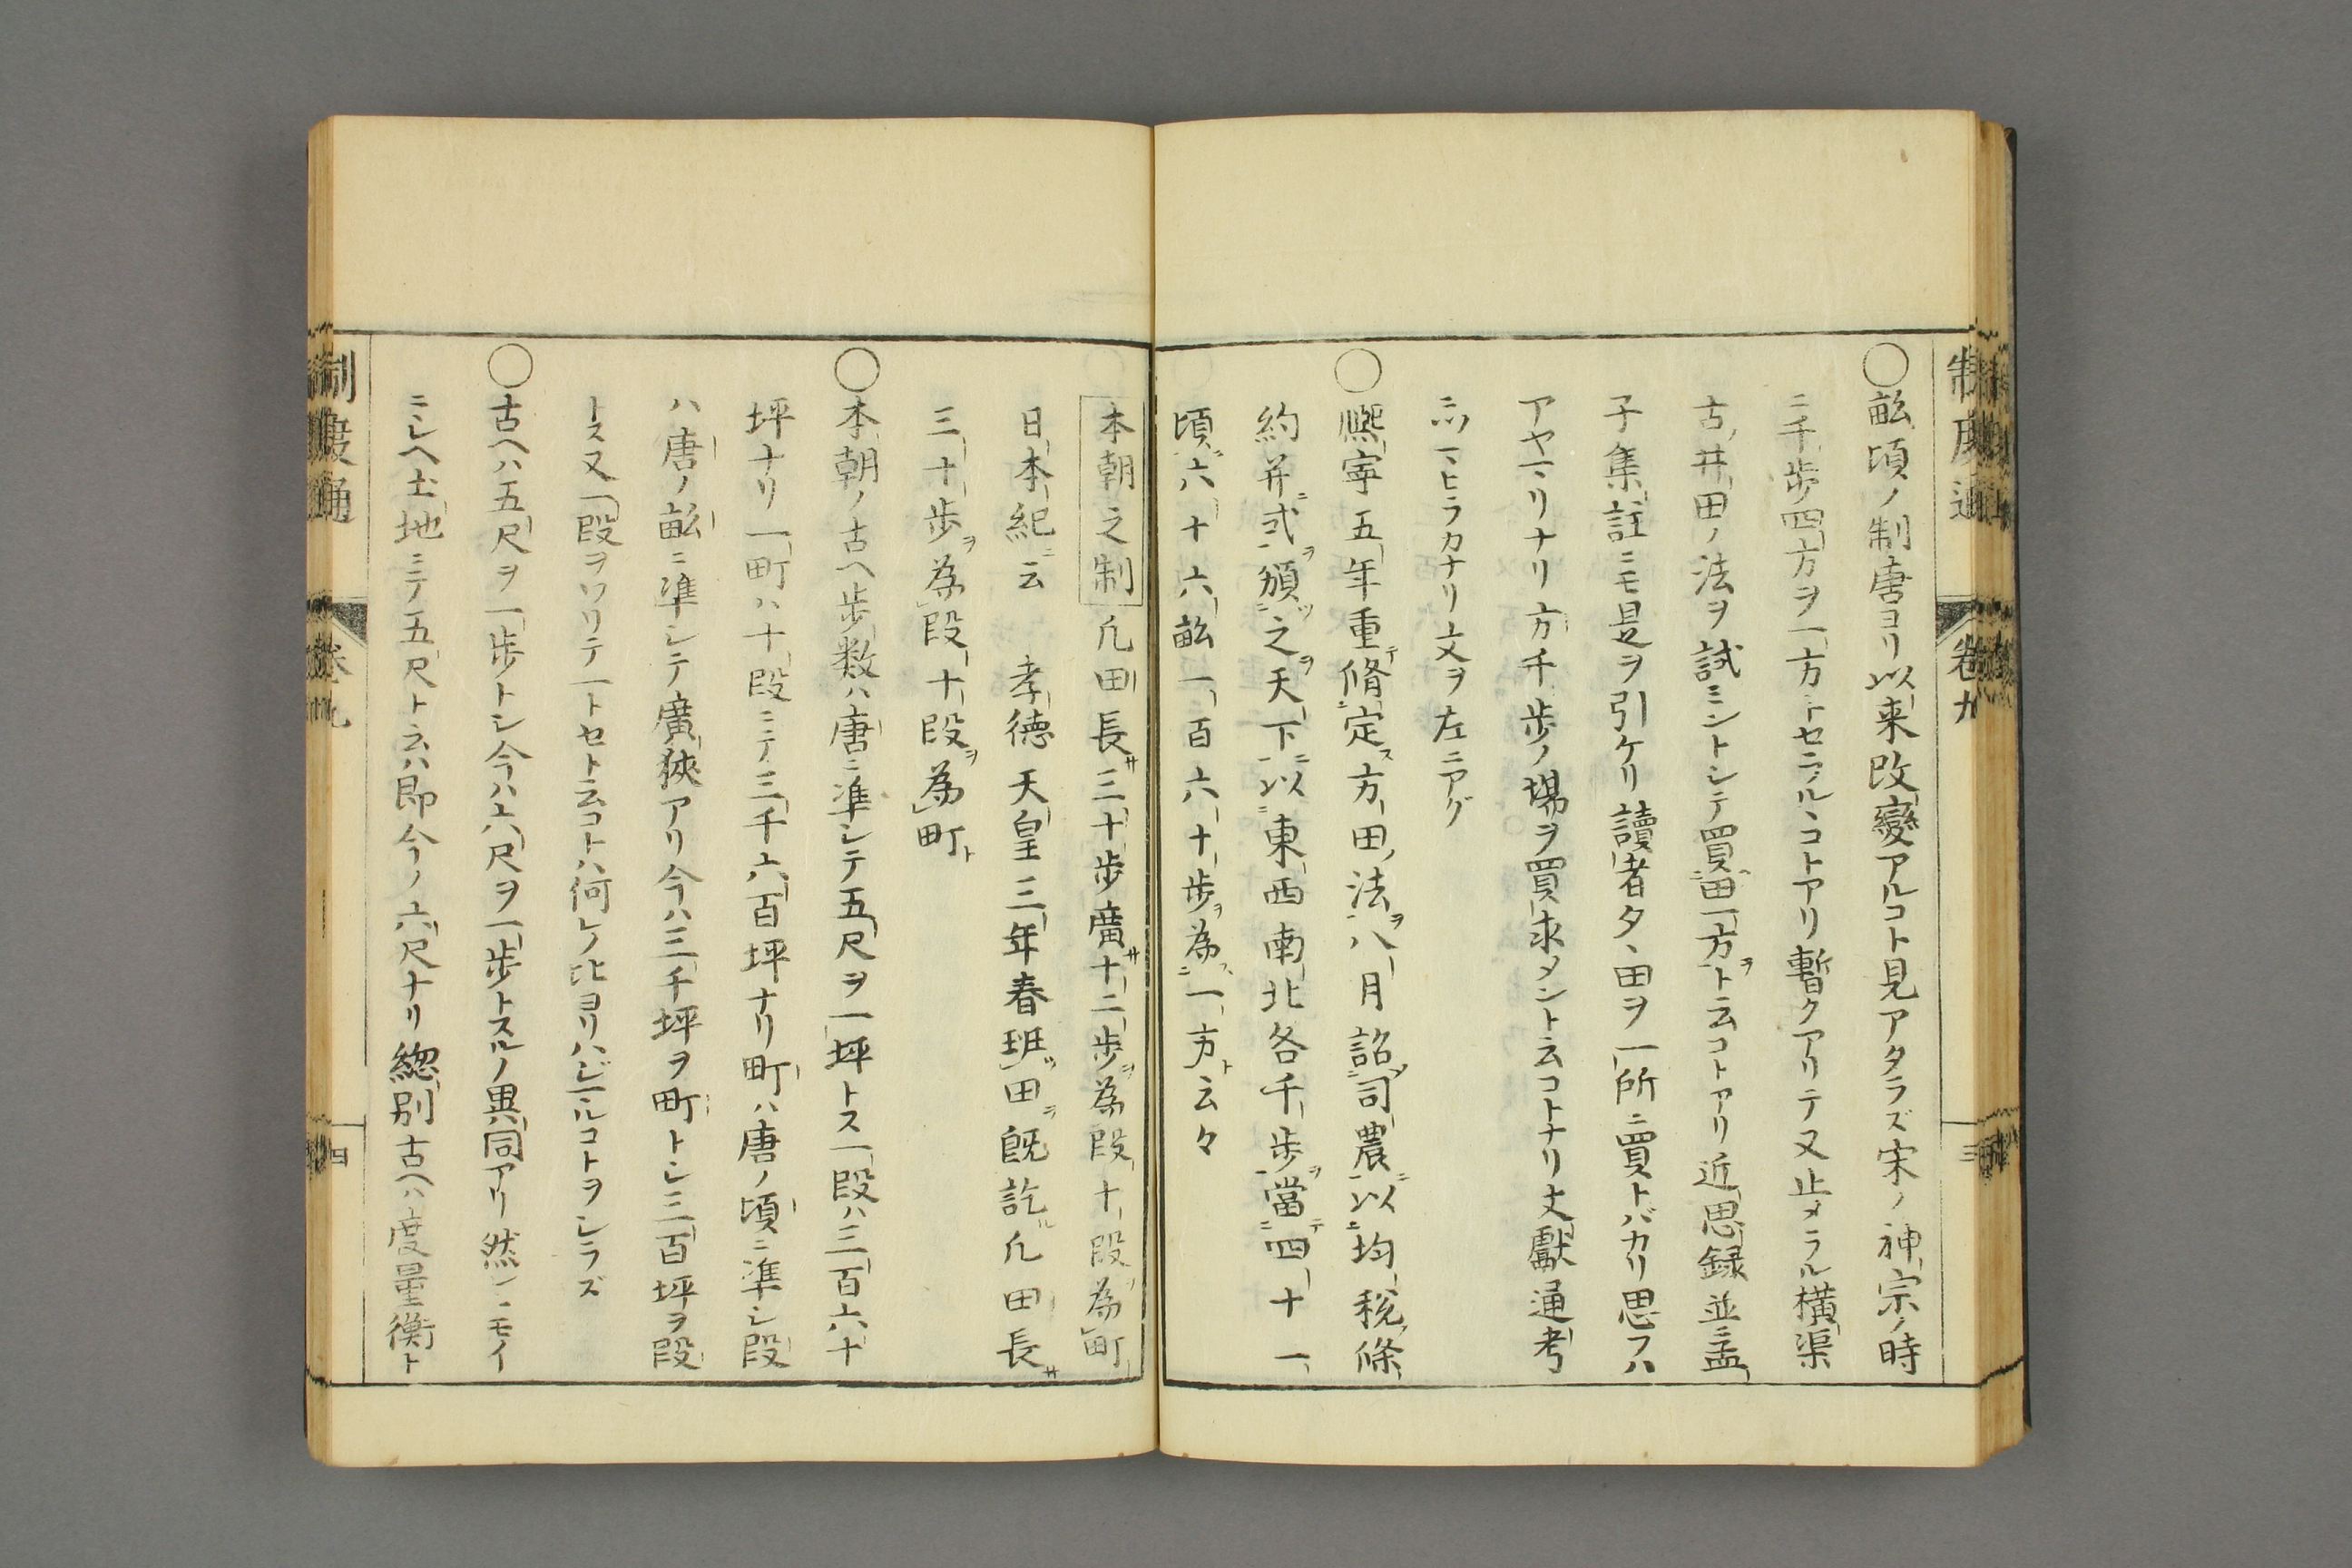 制度通
卷九
三
○畝頃ノ制唐ヨリ以来改變アルコト見アタラズ宋ノ神宗ノ時
ニ千歩四方ヲ一方トセラルヽコトアリ暫クアリテ又止メラル横渠
古ノ井田ノ法ヲ試ミントシテ買田一方ト云コトアリ近思録並ニ孟
子集註ニモ是ヲ引ケリ讀者タヾ田ヲ一所ニ買トバカリ思フハ
アヤマリナリ方千歩ノ場ヲ買求メント云コトナリ文獻通考
ニツマヒラカナリ文ヲ左ニアグ
○熈寧五年重脩定方田ノ法八月詔司農以均税條
約并式頒之天下以東西南北各千歩當四十一
頃六十六畝一百六十歩為一方云々
本朝之制凢田長三十歩廣十二歩為段十段為町
日本紀ニ云 孝徳天皇三年春班田既訖凢田長
三十歩為段十段為町
○本朝ノ古ヘ歩数ハ唐ニ準シテ五尺ヲ一坪トス一段ハ三百六十
坪ナリ一町ハ十段ニテ三千六百坪ナリ町ハ唐ノ頃ニ準シ段
ハ唐ノ畝ニ準シテ廣狹アリ今ハ三千坪ヲ町トシ三百坪ヲ段
トス又一段ヲワリテ一トセト云コトハ何レノ比ヨリハジマルコトヲシラズ
○古ヘハ五尺ヲ一歩トシ今ハ六尺ヲ一歩トスルノ異同アリ然シモイ
ニシヘ土地ニテ五尺ト云ハ即今ノ六尺ナリ緫別古ヘハ度量衡ト
制度通
卷九
四